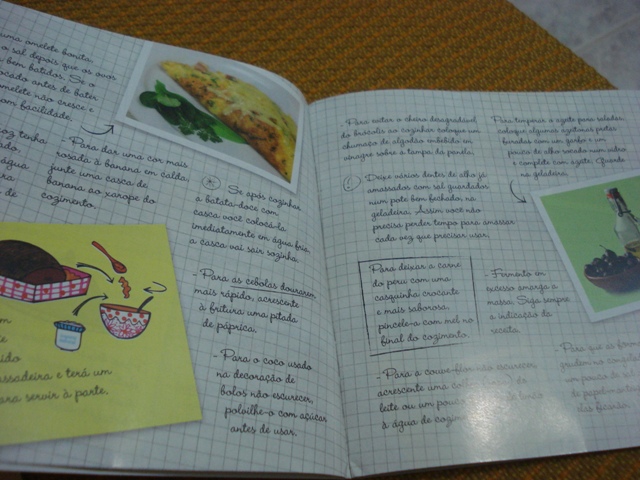 uma omelete bonita,
o sal depois que os ovos
bem batidos. Se o
ocado antes de bater
omelete não cresce e
com facilidade.
voz tenha
água
de
- Para dar uma cor mais
rosada à banana em calda,
junte uma casca de
banana ao xarope do
cozimento.
Se após cozinhar
a batata-doce com
casca você colocá-la
imediatamente em água fria,
a casca vai sair sozinha.
- Para as cebolas dourarem
mais rápido, acrescente
à fritura uma pitada
de páprica.
- Para o coco usado
na decoração de
bolos não escurecer,
polvilhe-o com açúcar
antes de usar.
assadeira e terá um
para servir à parte.
- Para evitar o cheiro desagradável
do brócolis ao cozinhar coloque um
chumaço de algodão embebido em
vinagre sobre a tampa da panela.
! Deixe vários dentes de alho já
amassados com sal guardados
num pote bem fechado, na
geladeira. Assim você não
precisa perder tempo para amassar
cada vez que precisar usar.
Para deixar a carne
do peru com uma
casquinha crocante
e mais saborosa,
pincele-a com mel no
final do cozimento.
- Para a couve-flor não escurecer,
acrescente uma
leite ou um pouco de limão
à água de
Para temperar o azeite para saladas,
coloque algumas azeitonas pretas
furadas com um garfo e um
pouco de alho socado num vidro
e complete com azeite. Guarde
na geladeira.
- Fermento em
excesso amarga a
massa. Siga sempre
a indicação da
receita.
Para que as
grudem no
um pouco de
de papel
elas ficarão